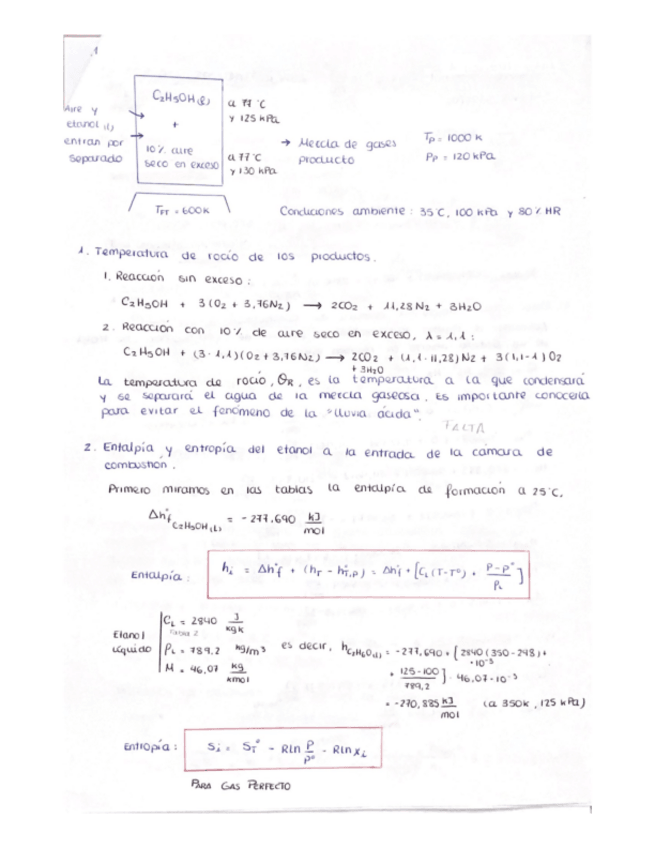 1
C2H5OH(l)
+
10% aire
seco en exceso
a 77°C
y 125 kPa
a 77°C
y 130 kPa
Aire y
etanol (l)
entran por
separado
→ Mezcla de gases
producto
Tp = 1000 K
Pp = 120 kPa
TFT = 600K
Condiciones ambiente: 35°C, 100 kPa y 80% HR
1. Temperatura de rocío de los productos.
1. Reacción sin exceso:
C2H5OH + 3(O2 + 3,76N2) → 2CO2 + 11,28N2 + 3H2O
2. Reacción con 10% de aire seco en exceso, λ = 1,1:
C2H5OH + (3·1,1)(O2 + 3,76N2) → 2CO2 + (1,1·11,28)N2 + 3(1,1-1)O2
+ 3H2O
La temperatura de rocío, θR, es la temperatura a la que condensará
y se separará el agua de la mezcla gaseosa. Es importante conocerla
para evitar el fenómeno de la "lluvia ácida".
FALTA
2. Entalpía y entropía del etanol a la entrada de la cámara de
combustión.
Primero miramos en las tablas la entalpía de formación a 25°C.
Δh°f C2H5OH(L) = -277,690 kJ/mol
Entalpía: hi = Δh°f + (hT - h°T,P) = Δh°f + [CL(T-T°) + P-P°/ρL]
Etanol
líquido
CL = 2840 J/kgK
Tabla 2
ρL = 789,2 kg/m3
M = 46,07 kg/kmol
es decir, hC2H6O(l) = -277,690 + [2840(350-298) +
·10-3
+ 125-100/789,2] · 46,07·10-3
= -270,885 kJ/mol (a 350K, 125 kPa)
Entropía: Si = S°T - Rln P/P° - Rln xi
PARA GAS PERFECTO